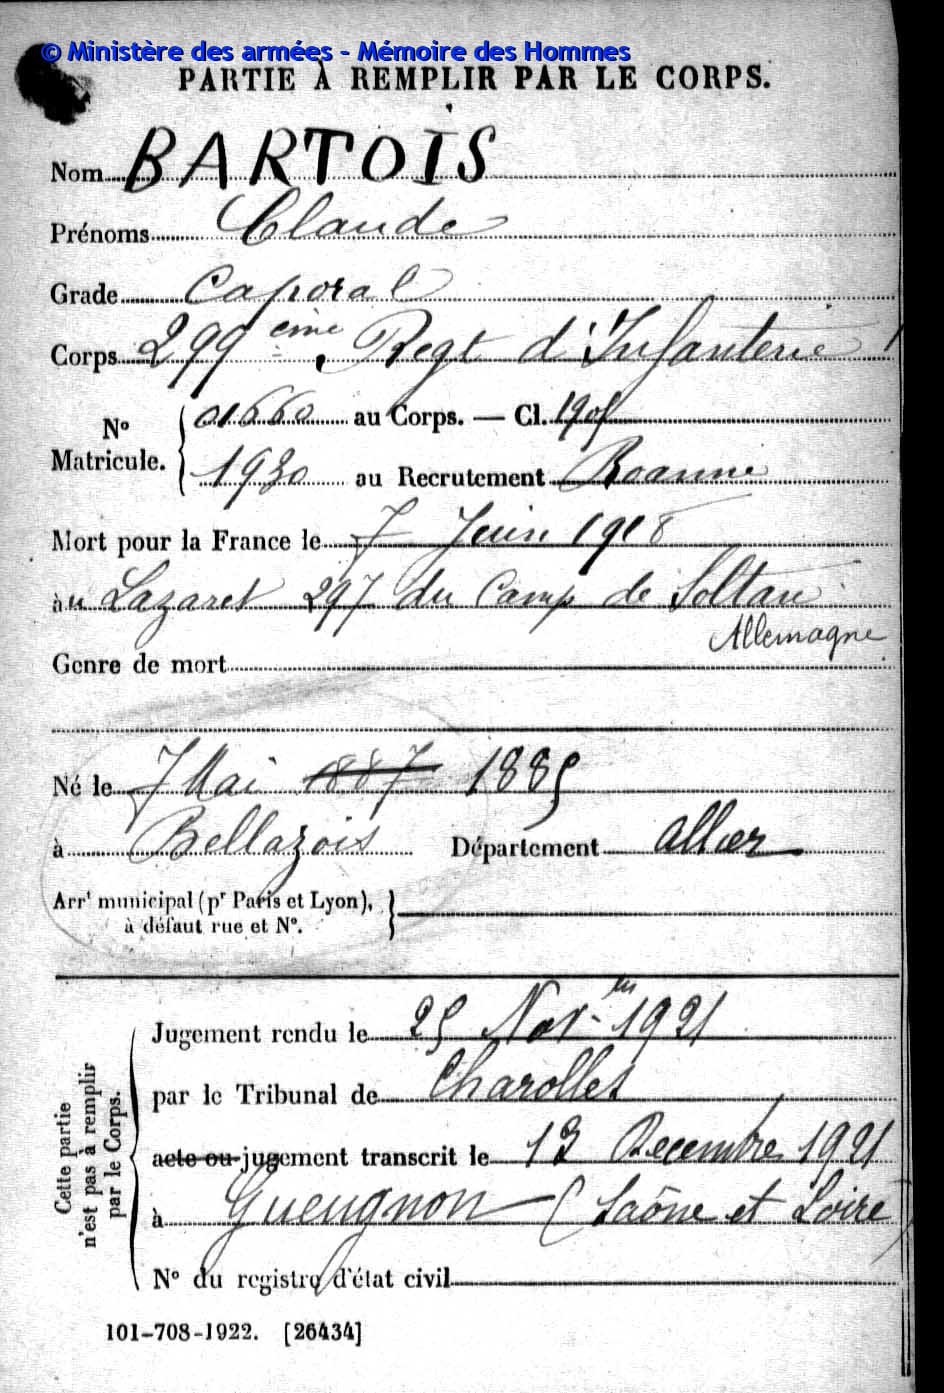 © Ministère des armées - Mémoire des Hommes
PARTIE À REMPLIR PAR LE CORPS.
Nom BARTOIS
Prénoms Claude
Grade Caporal
Corps 299 eme Regt d'Infanterie
N° Matricule. 01660 au Corps. — Cl. 1905
1930 au Recrutement Roanne
Mort pour la France le 7 Juin 1918
àu Lazaret 297 du Camp de Soltau
Allemagne
Genre de mort
Né le 7 Mai 1887 1885
à Bellazois Département Allier
Arrt municipal (pr Paris et Lyon),
à défaut rue et N°.
Cette partie
n'est pas à remplir
par le Corps.
Jugement rendu le 25 Nov. 1921
par le Tribunal de Charolles
acte ou jugement transcrit le 13 Decembre 1921
à Gueugnon (Saône et Loire)
N° du registre d'état civil
101-708-1922. [26434]